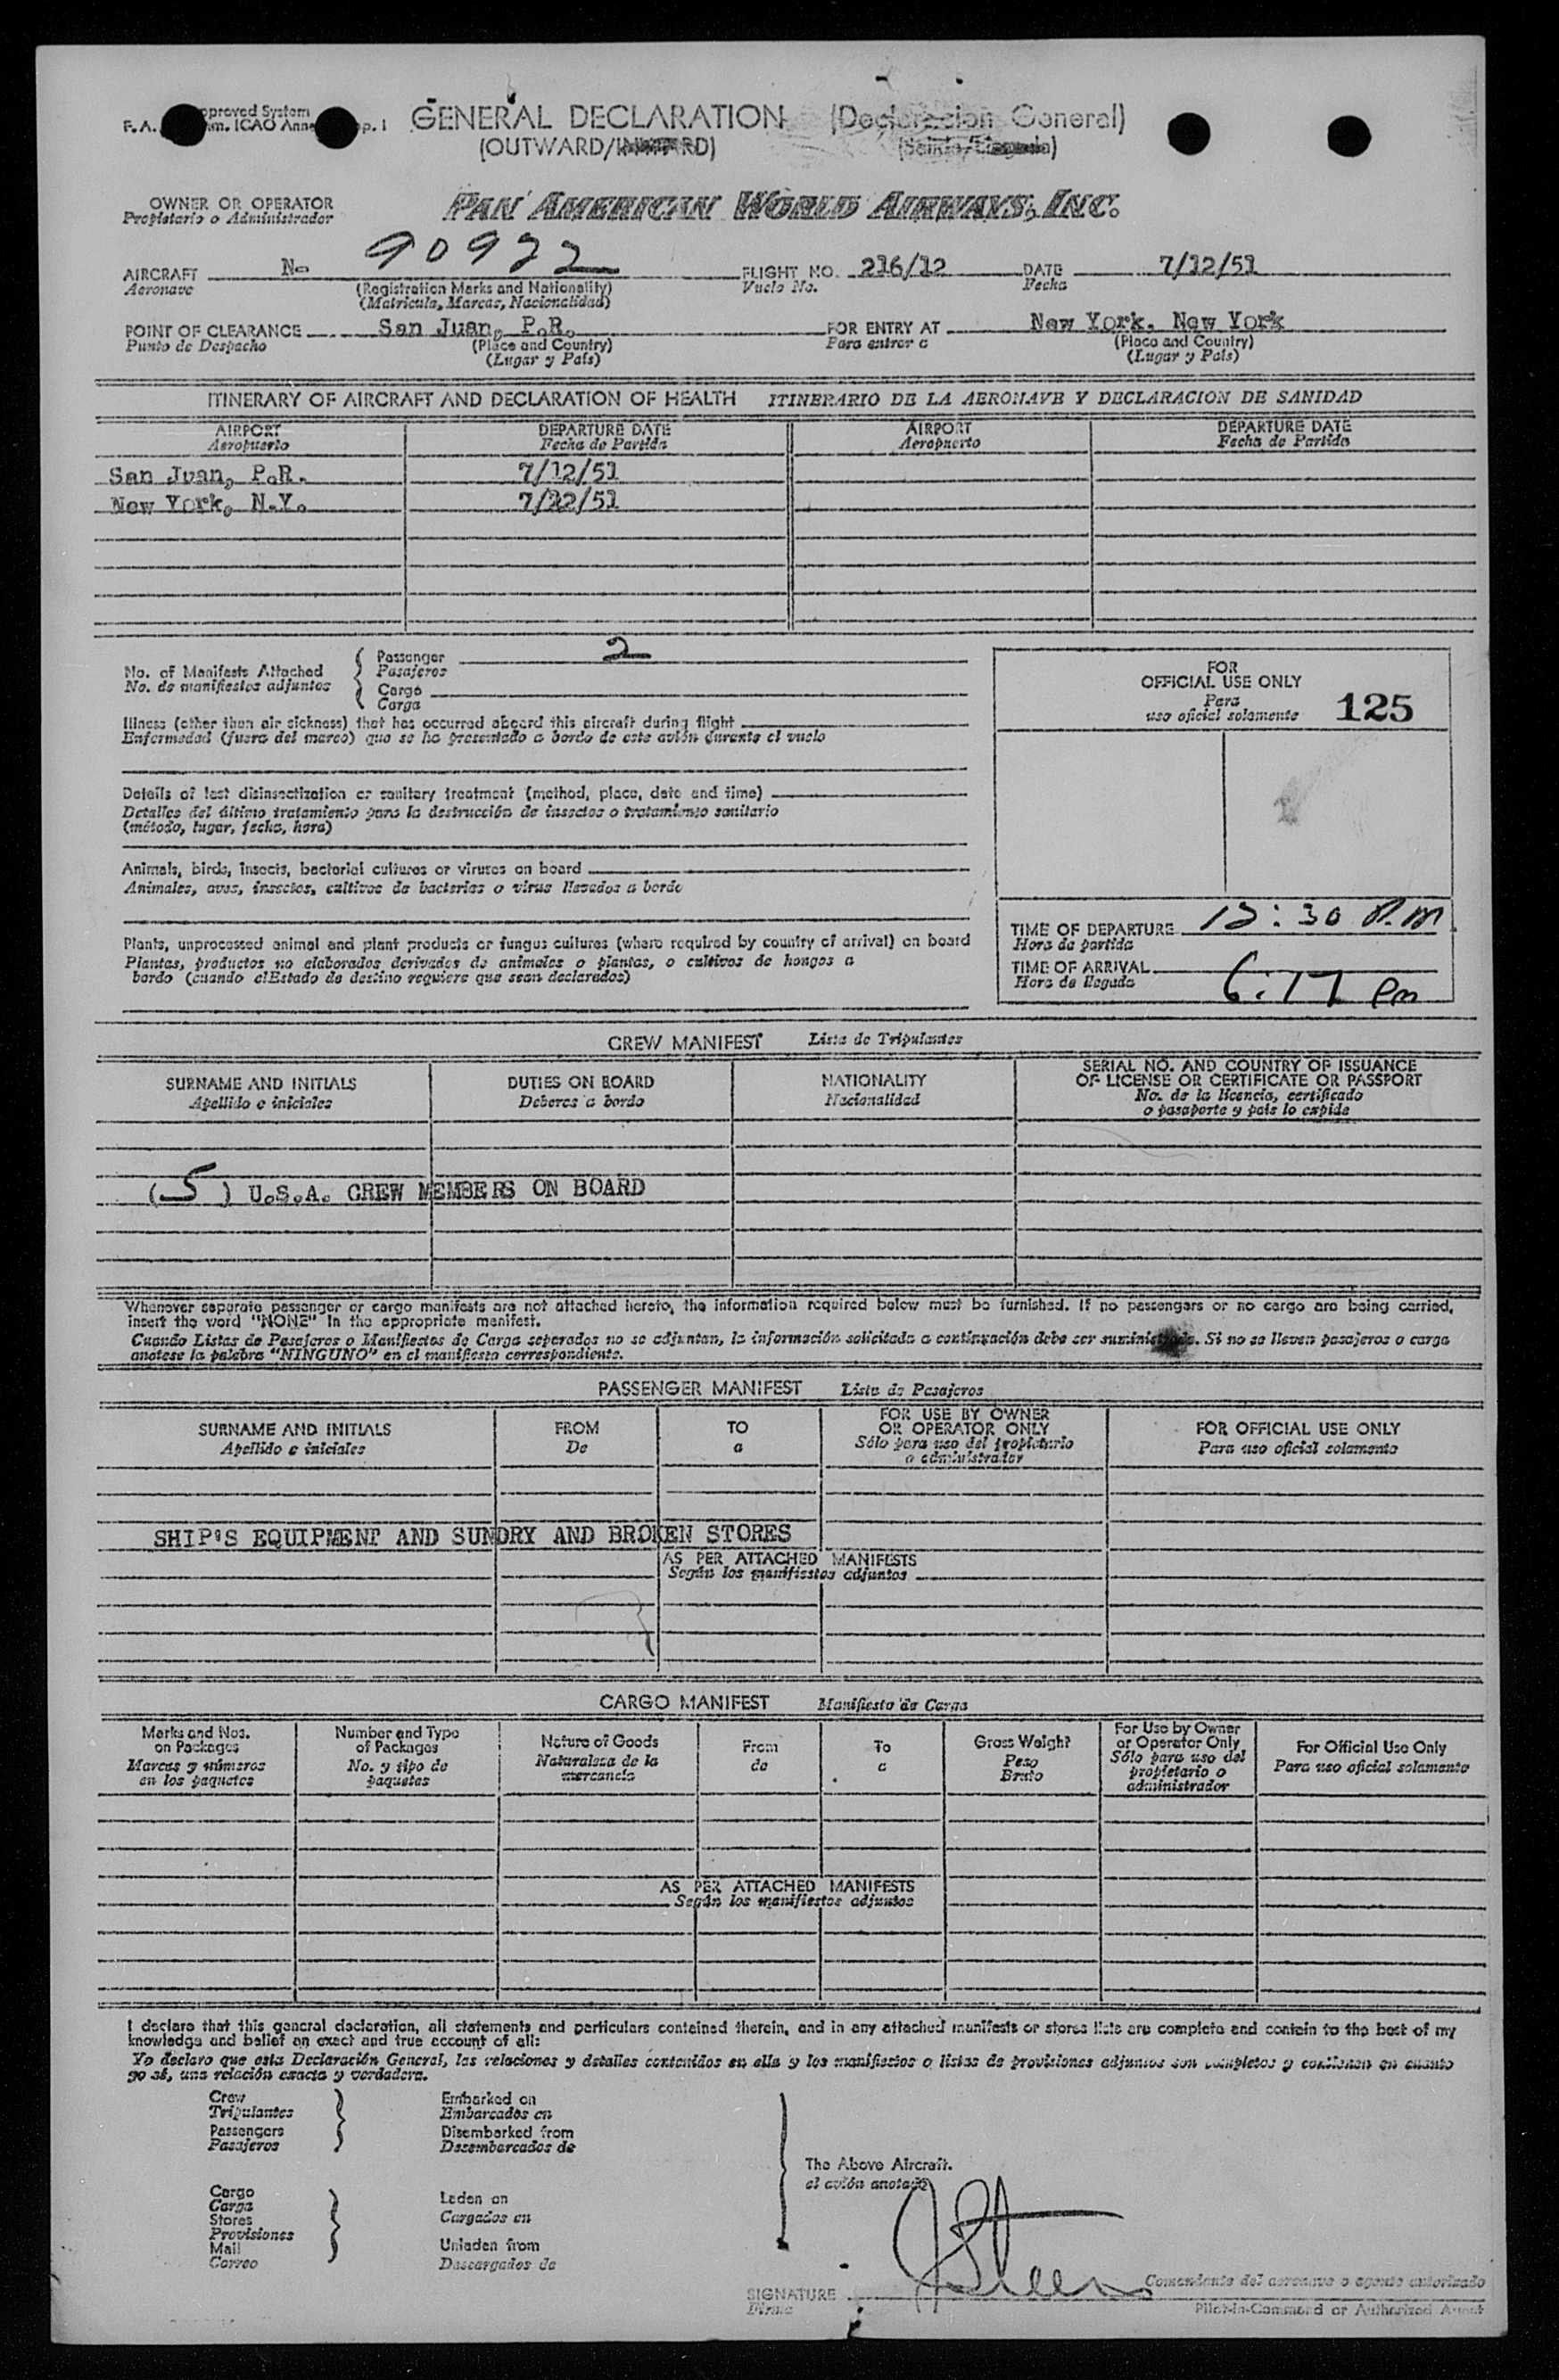 pproved System
F. A. m. ICAO Anne p. 1
GENERAL DECLARATION (Declaracion General)
(OUTWARD/INWARD) (Salida/Llegada)
OWNER OR OPERATOR
Propietario o Administrador
PAN AMERICAN WORLD AIRWAYS, INC.
AIRCRAFT N- 90922 FLIGHT NO. 216/12 DATE 7/12/51
Aeronave (Registration Marks and Nationality) Vuelo No. Fecha
(Matricula, Marcas, Nacionalidad)
POINT OF CLEARANCE San Juan, P.R. FOR ENTRY AT New York, New York
Punto de Despacho (Place and Country) Para entrar a (Place and Country)
(Lugar y País) (Lugar y País)
ITINERARY OF AIRCRAFT AND DECLARATION OF HEALTH ITINERARIO DE LA AERONAVE Y DECLARACION DE SANIDAD
AIRPORT DEPARTURE DATE AIRPORT DEPARTURE DATE
Aeropuerto Fecha de Partida Aeropuerto Fecha de Partida
San Juan, P.R. 7/12/51
New York, N.Y. 7/12/51
No. of Manifests Attached Passenger 2
No. de manifiestos adjuntos Pasajeros
Cargo
Carga
FOR
OFFICIAL USE ONLY
Para
uso oficial solamente 125
Illness (other than air sickness) that has occurred aboard this aircraft during flight
Enfermedad (fuera del mareo) que se ha presentado a bordo de este avión durante el vuelo
Details of last disinsectization or sanitary treatment (method, place, date and time)
Detalles del último tratamiento para la destrucción de insectos o tratamiento sanitario
(método, lugar, fecha, hora)
Animals, birds, insects, bacterial cultures or viruses on board
Animales, aves, insectos, cultivos de bacterias o virus llevados a bordo
Plants, unprocessed animal and plant products or fungus cultures (where required by country of arrival) on board
Plantas, productos no elaborados derivados de animales o plantas, o cultivos de hongos a
bordo (cuando elEstado de destino requiere que sean declarados)
TIME OF DEPARTURE 12:30 P.M.
Hora de partida
TIME OF ARRIVAL 6:17 Pm
Hora de llegada
CREW MANIFEST Lista de Tripulantes
SURNAME AND INITIALS DUTIES ON BOARD NATIONALITY SERIAL NO. AND COUNTRY OF ISSUANCE
OF LICENSE OR CERTIFICATE OR PASSPORT
Apellido e iniciales Deberes a bordo Nacionalidad No. de la licencia, certificado
o pasaporte y país lo expide
(5) U.S.A. CREW MEMBERS ON BOARD
Whenever separate passenger or cargo manifests are not attached hereto, the information required below must be furnished. If no passengers or no cargo are being carried,
insert the word "NONE" in the appropriate manifest.
Cuando Listas de Pasajeros o Manifiestos de Carga separados no se adjuntan, la información solicitada a continuación debe ser suministrada. Si no se llevan pasajeros o carga
anotese la palabra "NINGUNO" en el manifiesto correspondiente.
PASSENGER MANIFEST Lista de Pasajeros
SURNAME AND INITIALS FROM TO FOR USE BY OWNER
OR OPERATOR ONLY FOR OFFICIAL USE ONLY
Apellido e iniciales De a Sólo para uso del propietario
o administrador Para uso oficial solamente
SHIP'S EQUIPMENT AND SUNDRY AND BROKEN STORES
AS PER ATTACHED MANIFESTS
Según los manifiestos adjuntos
CARGO MANIFEST Manifiesto de Carga
Marks and Nos.
on Packages
Marcas y números
en los paquetes
Number and Type
of Packages
No. y tipo de
paquetes
Nature of Goods
Naturaleza de la
mercancía
From
de
To
a
Gross Weight
Peso
Bruto
For Use by Owner
or Operator Only
Sólo para uso del
propietario o
administrador
For Official Use Only
Para uso oficial solamente
AS PER ATTACHED MANIFESTS
Según los manifiestos adjuntos
I declare that this general declaration, all statements and particulars contained therein, and in any attached manifests or stores lists are complete and contain to the best of my
knowledge and belief an exact and true account of all:
Yo declaro que esta Declaración General, las relaciones y detalles contenidos en ella y los manifiestos o listas de provisiones adjuntos son completos y contienen en cuanto
yo sé, una relación exacta y verdadera.
Crew Embarked on
Tripulantes Embarcados en
Passengers Disembarked from
Pasajeros Desembarcados de
The Above Aircraft.
el avión anotado
Cargo Laden on
Carga Cargados en
Stores
Provisiones
Mail Unladen from
Correo Descargados de
SIGNATURE
Firma
Comandante del aeronave o agente autorizado
Pilot-in-Command or Authorized Agent